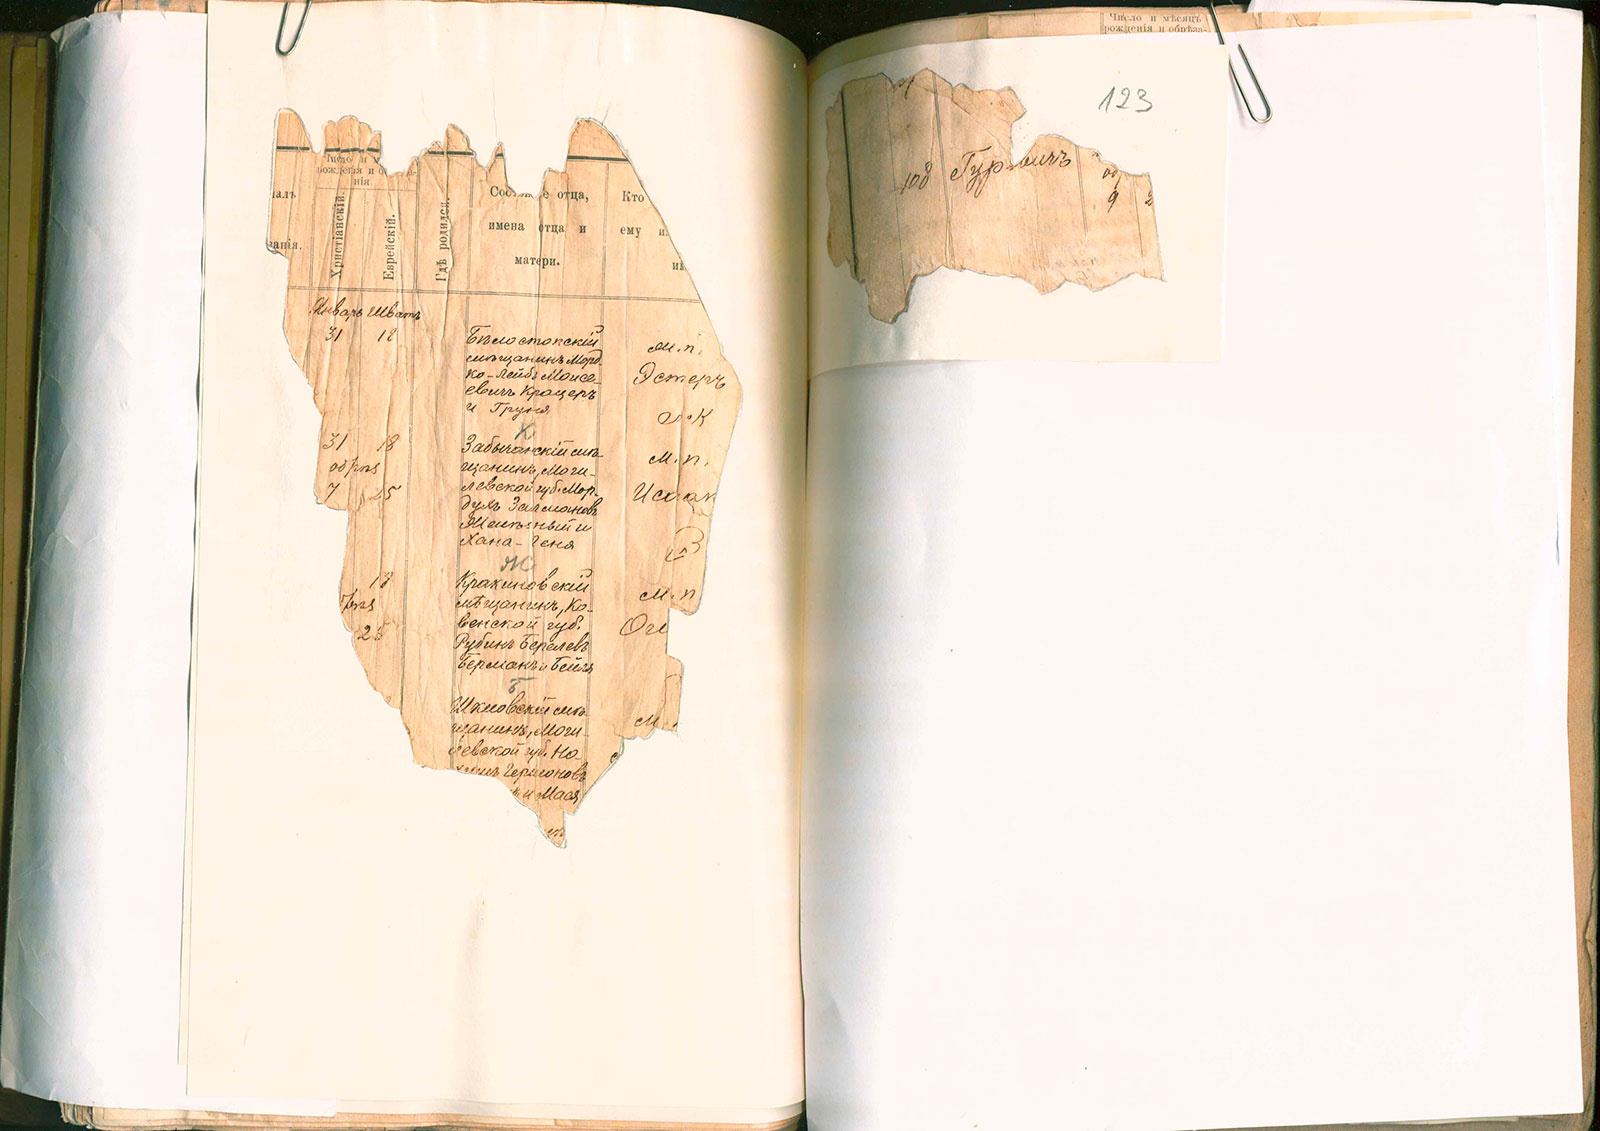 Число и м
рожденія и об
нія
Христіанскій.
Еврейскій.
Гдѣ родился.
е отца,
имена отца и
матери.
Кто
ему и
им
алъ
анія.
Январь Шватъ
31 18
Бѣлостокскій
мѣщанинъ Морд
ко-Лейбъ Моисе-
евичъ Крацеръ
и Груня
М.п.
Эстеръ
К
31 18
обрѣз
7 25
Забычанскій мѣ-
щанинъ, Моги-
левской губ. Мор-
духъ Залмановъ
и
Хана-Геня
м.п.
Исаак
Ж
18
рѣз
25
Кракиновскій
мѣщанинъ, Ко-
венской губ.
Рубинъ Берелевъ
Берманъ и Бейля
м.п
Б
Шкловскій мѣ-
щанинъ, Моги
левской губ. Но-
Гершоновъ
и Мася
м.
Число и мѣсяцъ
рожденія и обрѣза-
123
108 Гурвичъ
об
9 2